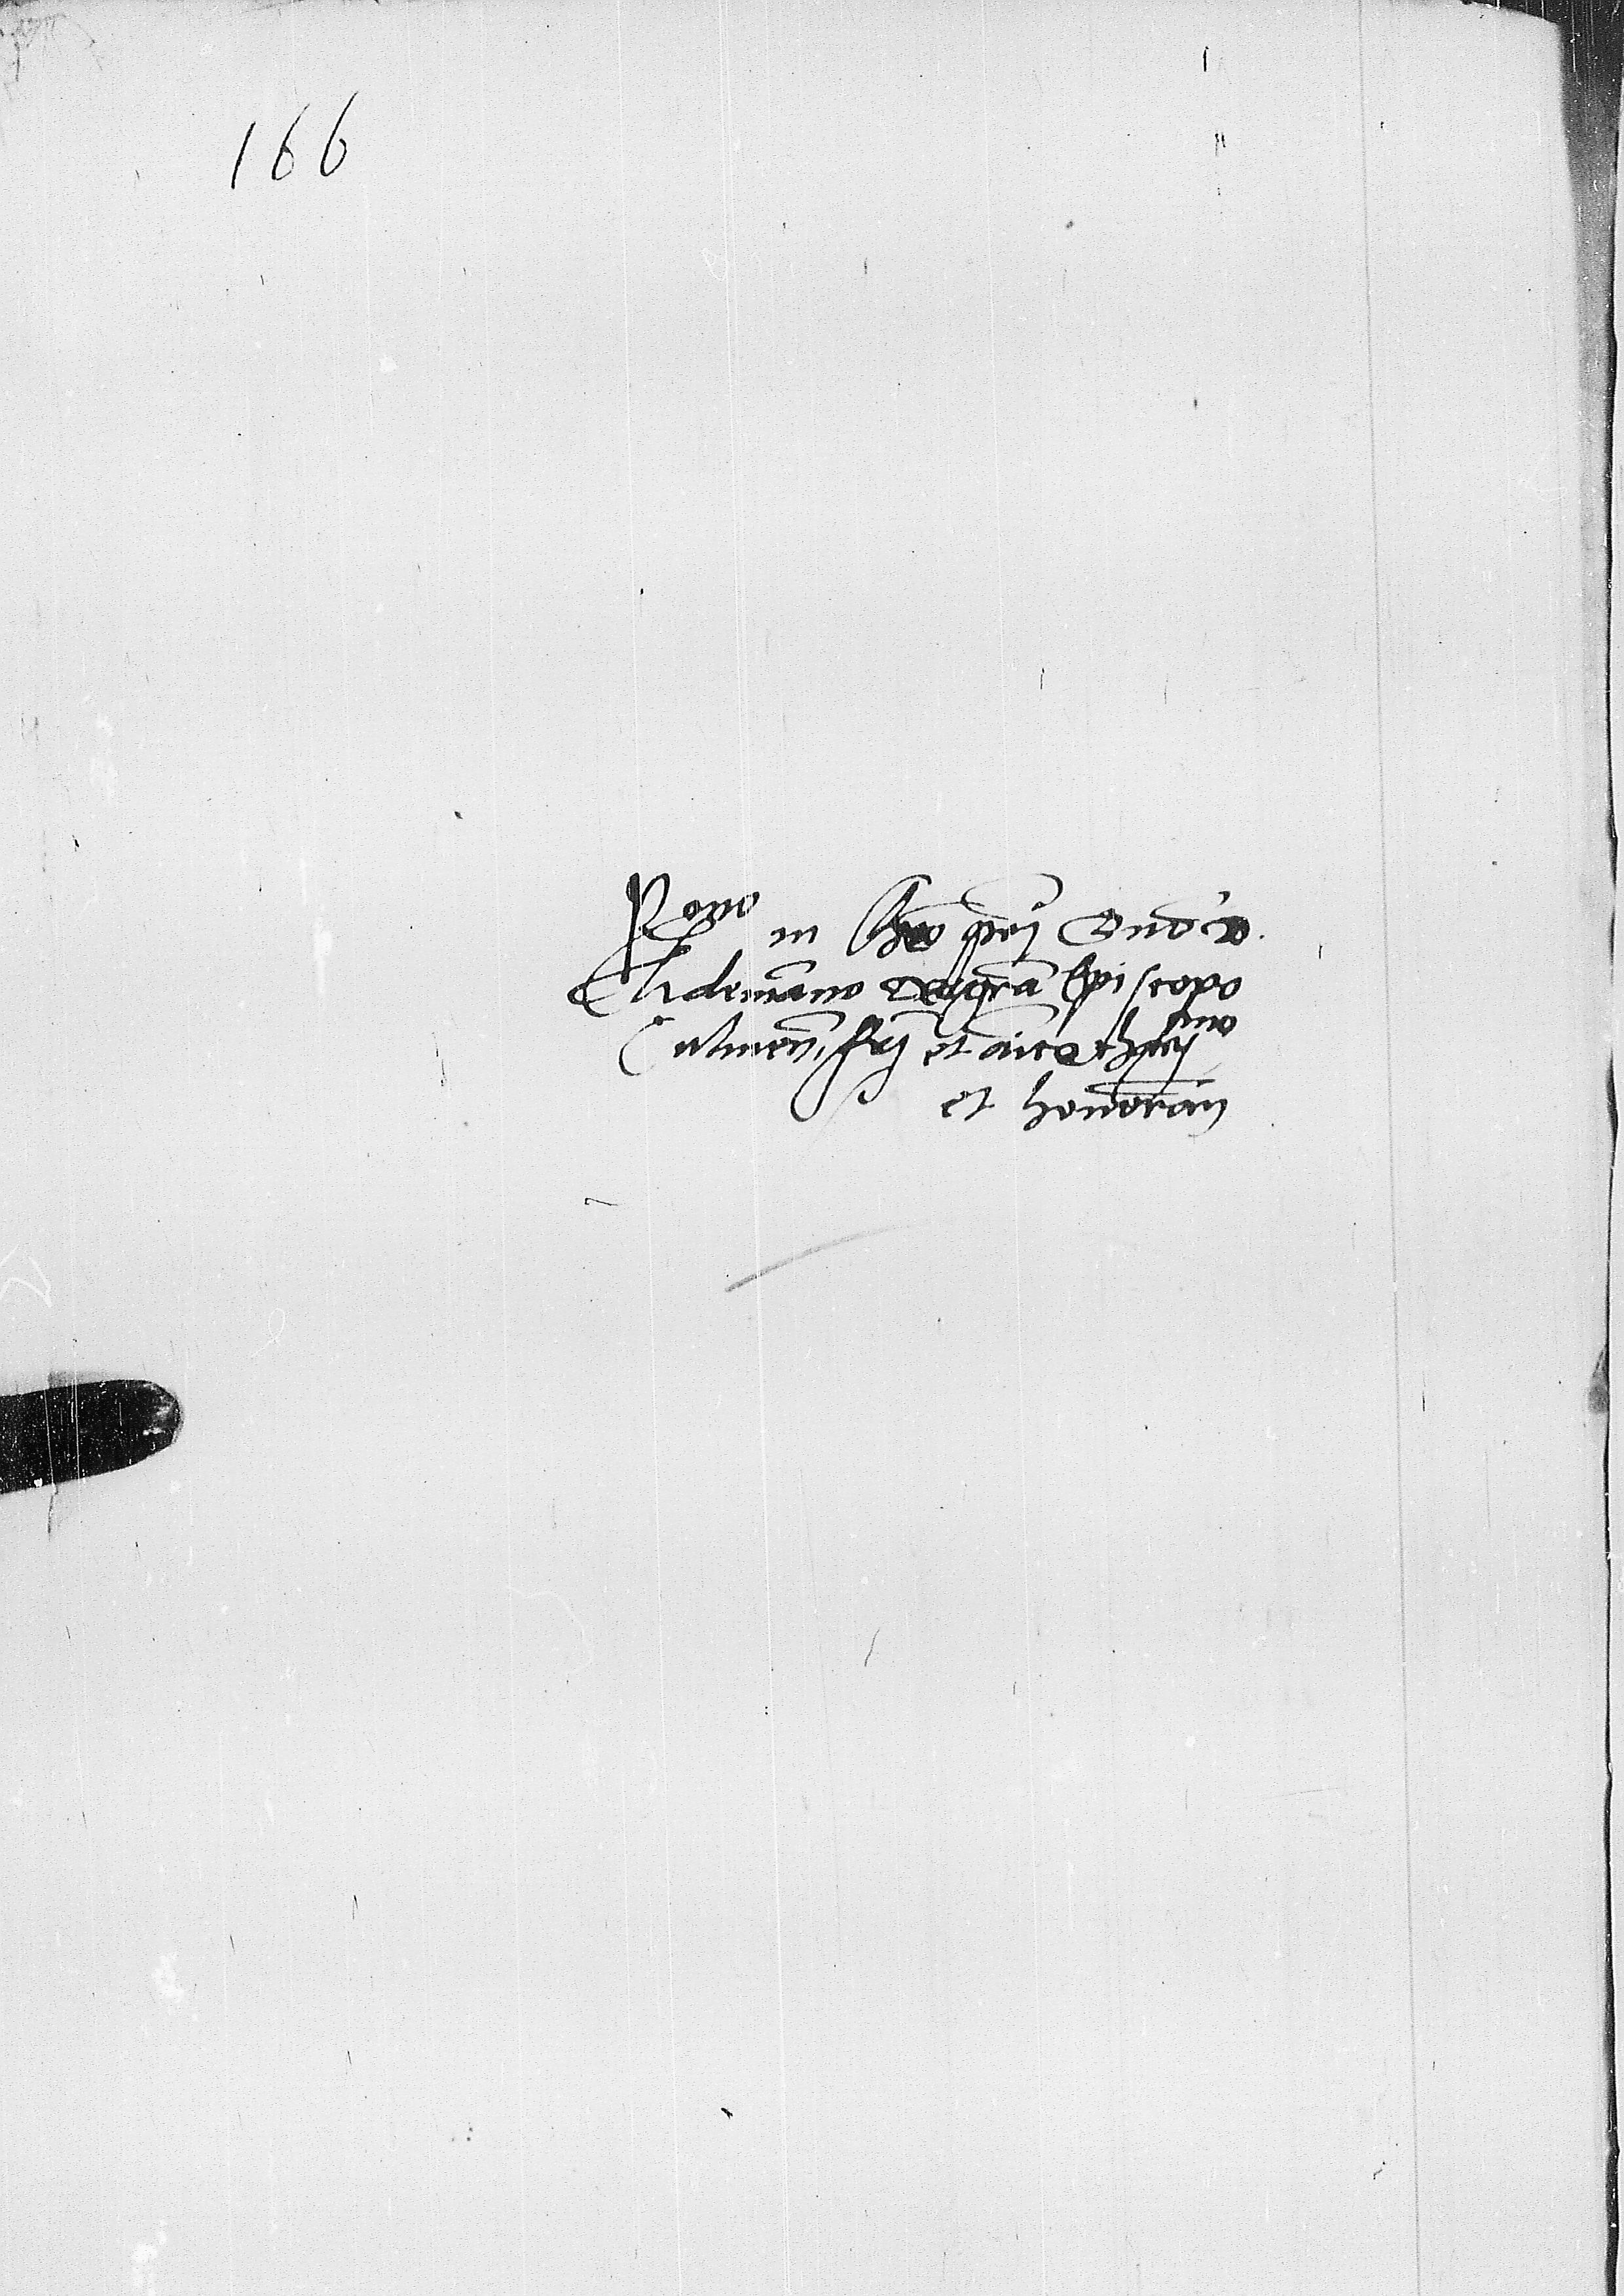 166
Reuo in Chro pri Dno D.
Tidemanno Dei gra Episcopo
Culmen. fri et amico chari mo
et honoran